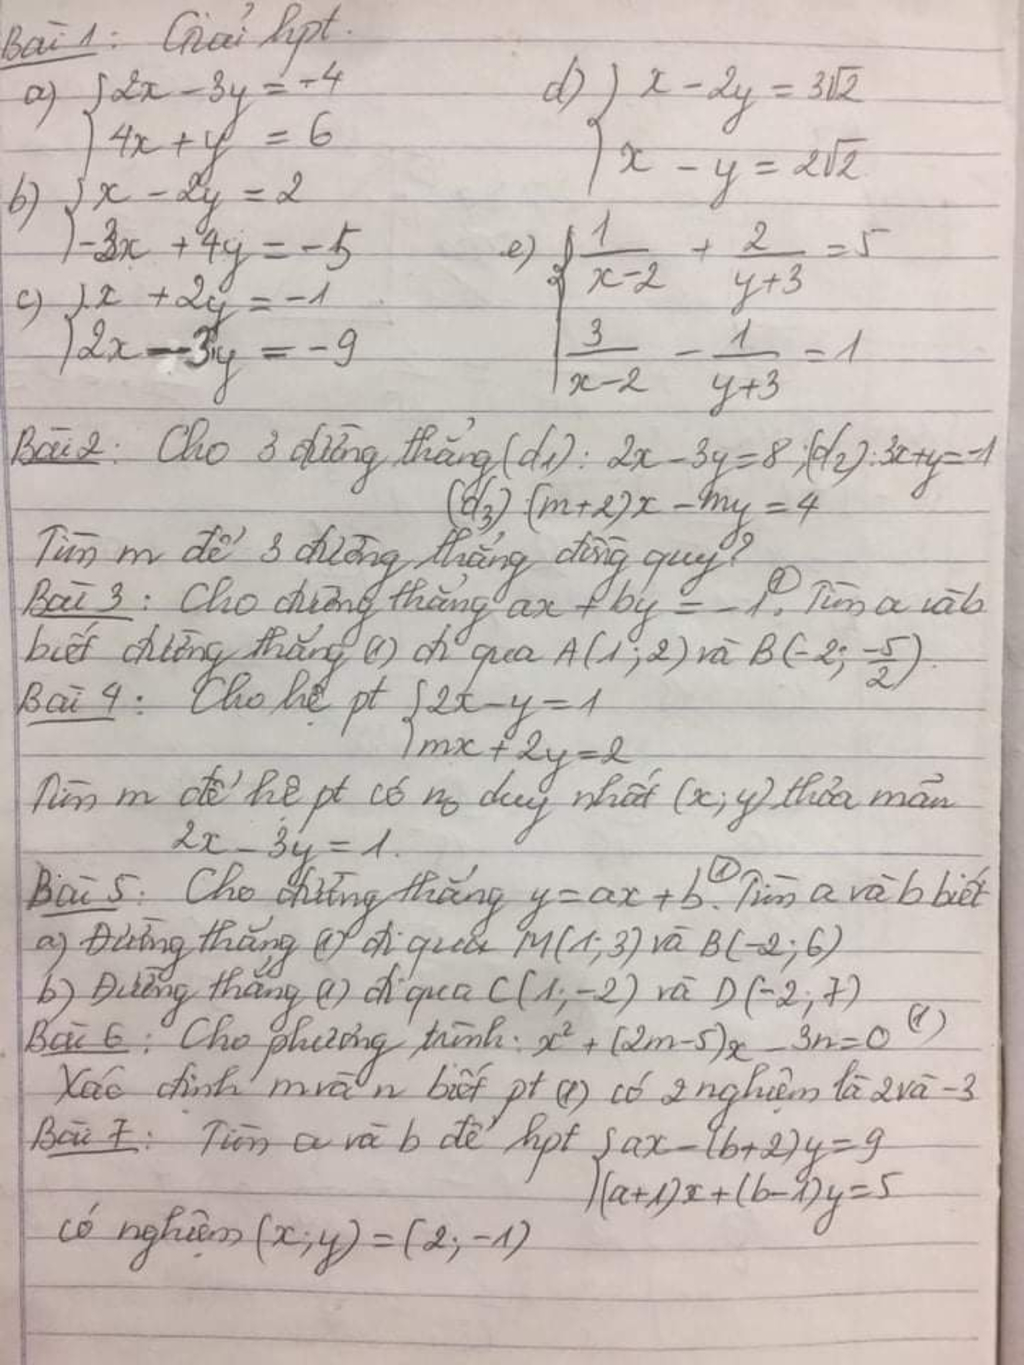 Bài 1: Giải hpt.
a) { 2x - 3y = -4
4x + y = 6
b) { x - 2y = 2
-3x + 4y = -5
c) { x + 2y = -1
2x - 3y = -9
d) { x - 2y = 3√2
x - y = 2√2
e) { 1/(x-2) + 2/(y+3) = 5
3/(x-2) - 1/(y+3) = 1
Bài 2: Cho 3 đường thẳng (d1): 2x - 3y = 8 ; (d2): 3x+y=-1
(d3) (m+2)x - my = 4
Tìm m để 3 đường thẳng đồng quy?
Bài 3: Cho đường thẳng ax + by = -1 (1). Tìm a và b
biết đường thẳng (1) đi qua A(1;2) và B(-2; -5/2).
Bài 4: Cho hệ pt { 2x - y = 1
mx + 2y = 2
Tìm m để hệ pt có no duy nhất (x;y) thỏa mãn
2x - 3y = 1.
Bài 5: Cho đường thẳng y = ax + b (1). Tìm a và b biết
a) Đường thẳng (1) đi qua M(1;3) và B(-2;6)
b) Đường thẳng (1) đi qua C(1;-2) và D(-2;7)
Bài 6: Cho phương trình: x² + (2m-5)x - 3n=0 (1)
Xác định m và n biết pt (1) có 2 nghiệm là 2 và -3
Bài 7: Tìm a và b để hpt { ax - (b+2)y = 9
(a+1)x + (b-1)y = 5
có nghiệm (x;y) = (2;-1)